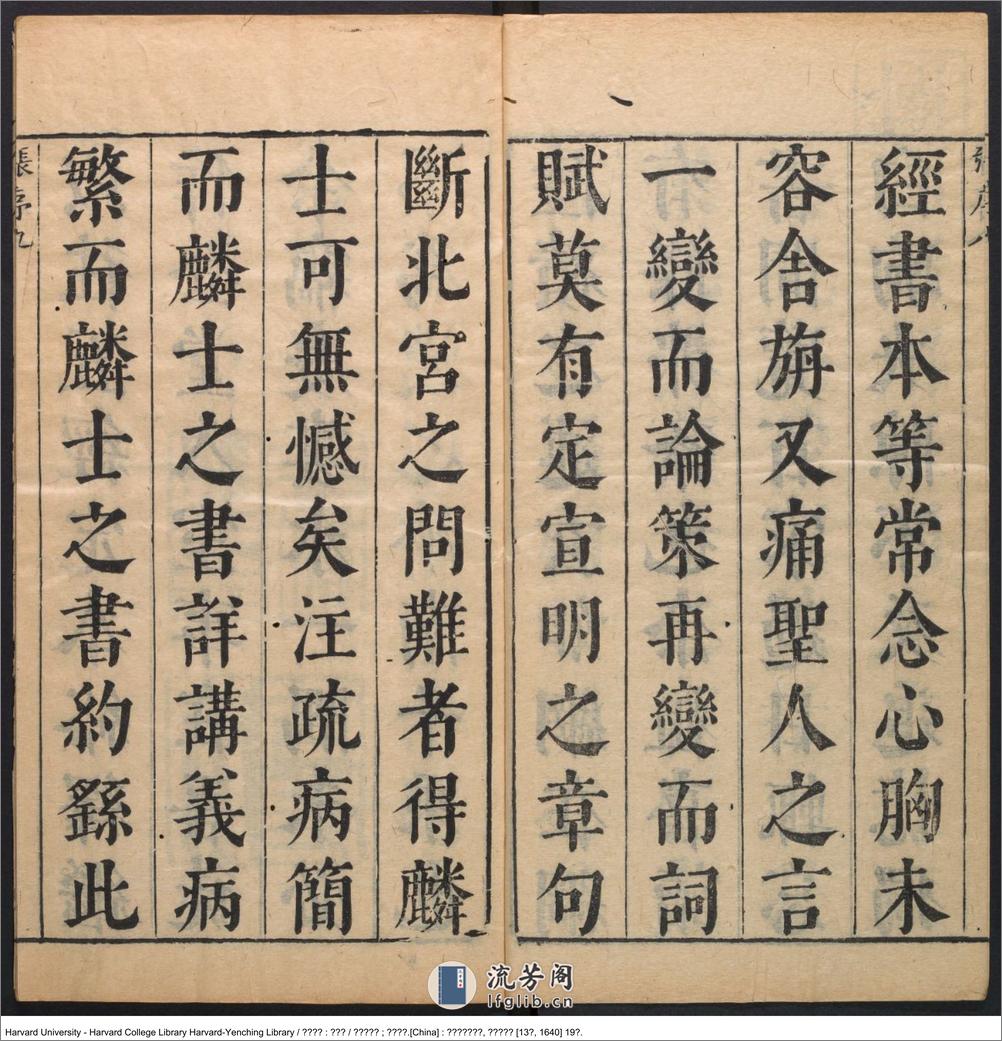 經書本等常念心胸未
容舍旃又痛聖人之言
一變而論策再變而詞
賦莫有定宣明之章句
斷北宮之問難者得麟
士可無憾矣注疏病簡
而麟士之書詳講義病
繁而麟士之書約繇此
張序八
張序九
流芳阁
lfglib.cn
Harvard University - Harvard College Library Harvard-Yenching Library / ???? : ??? / ????? ; ????.[China] : ???????, ????? [13?, 1640] 19?.